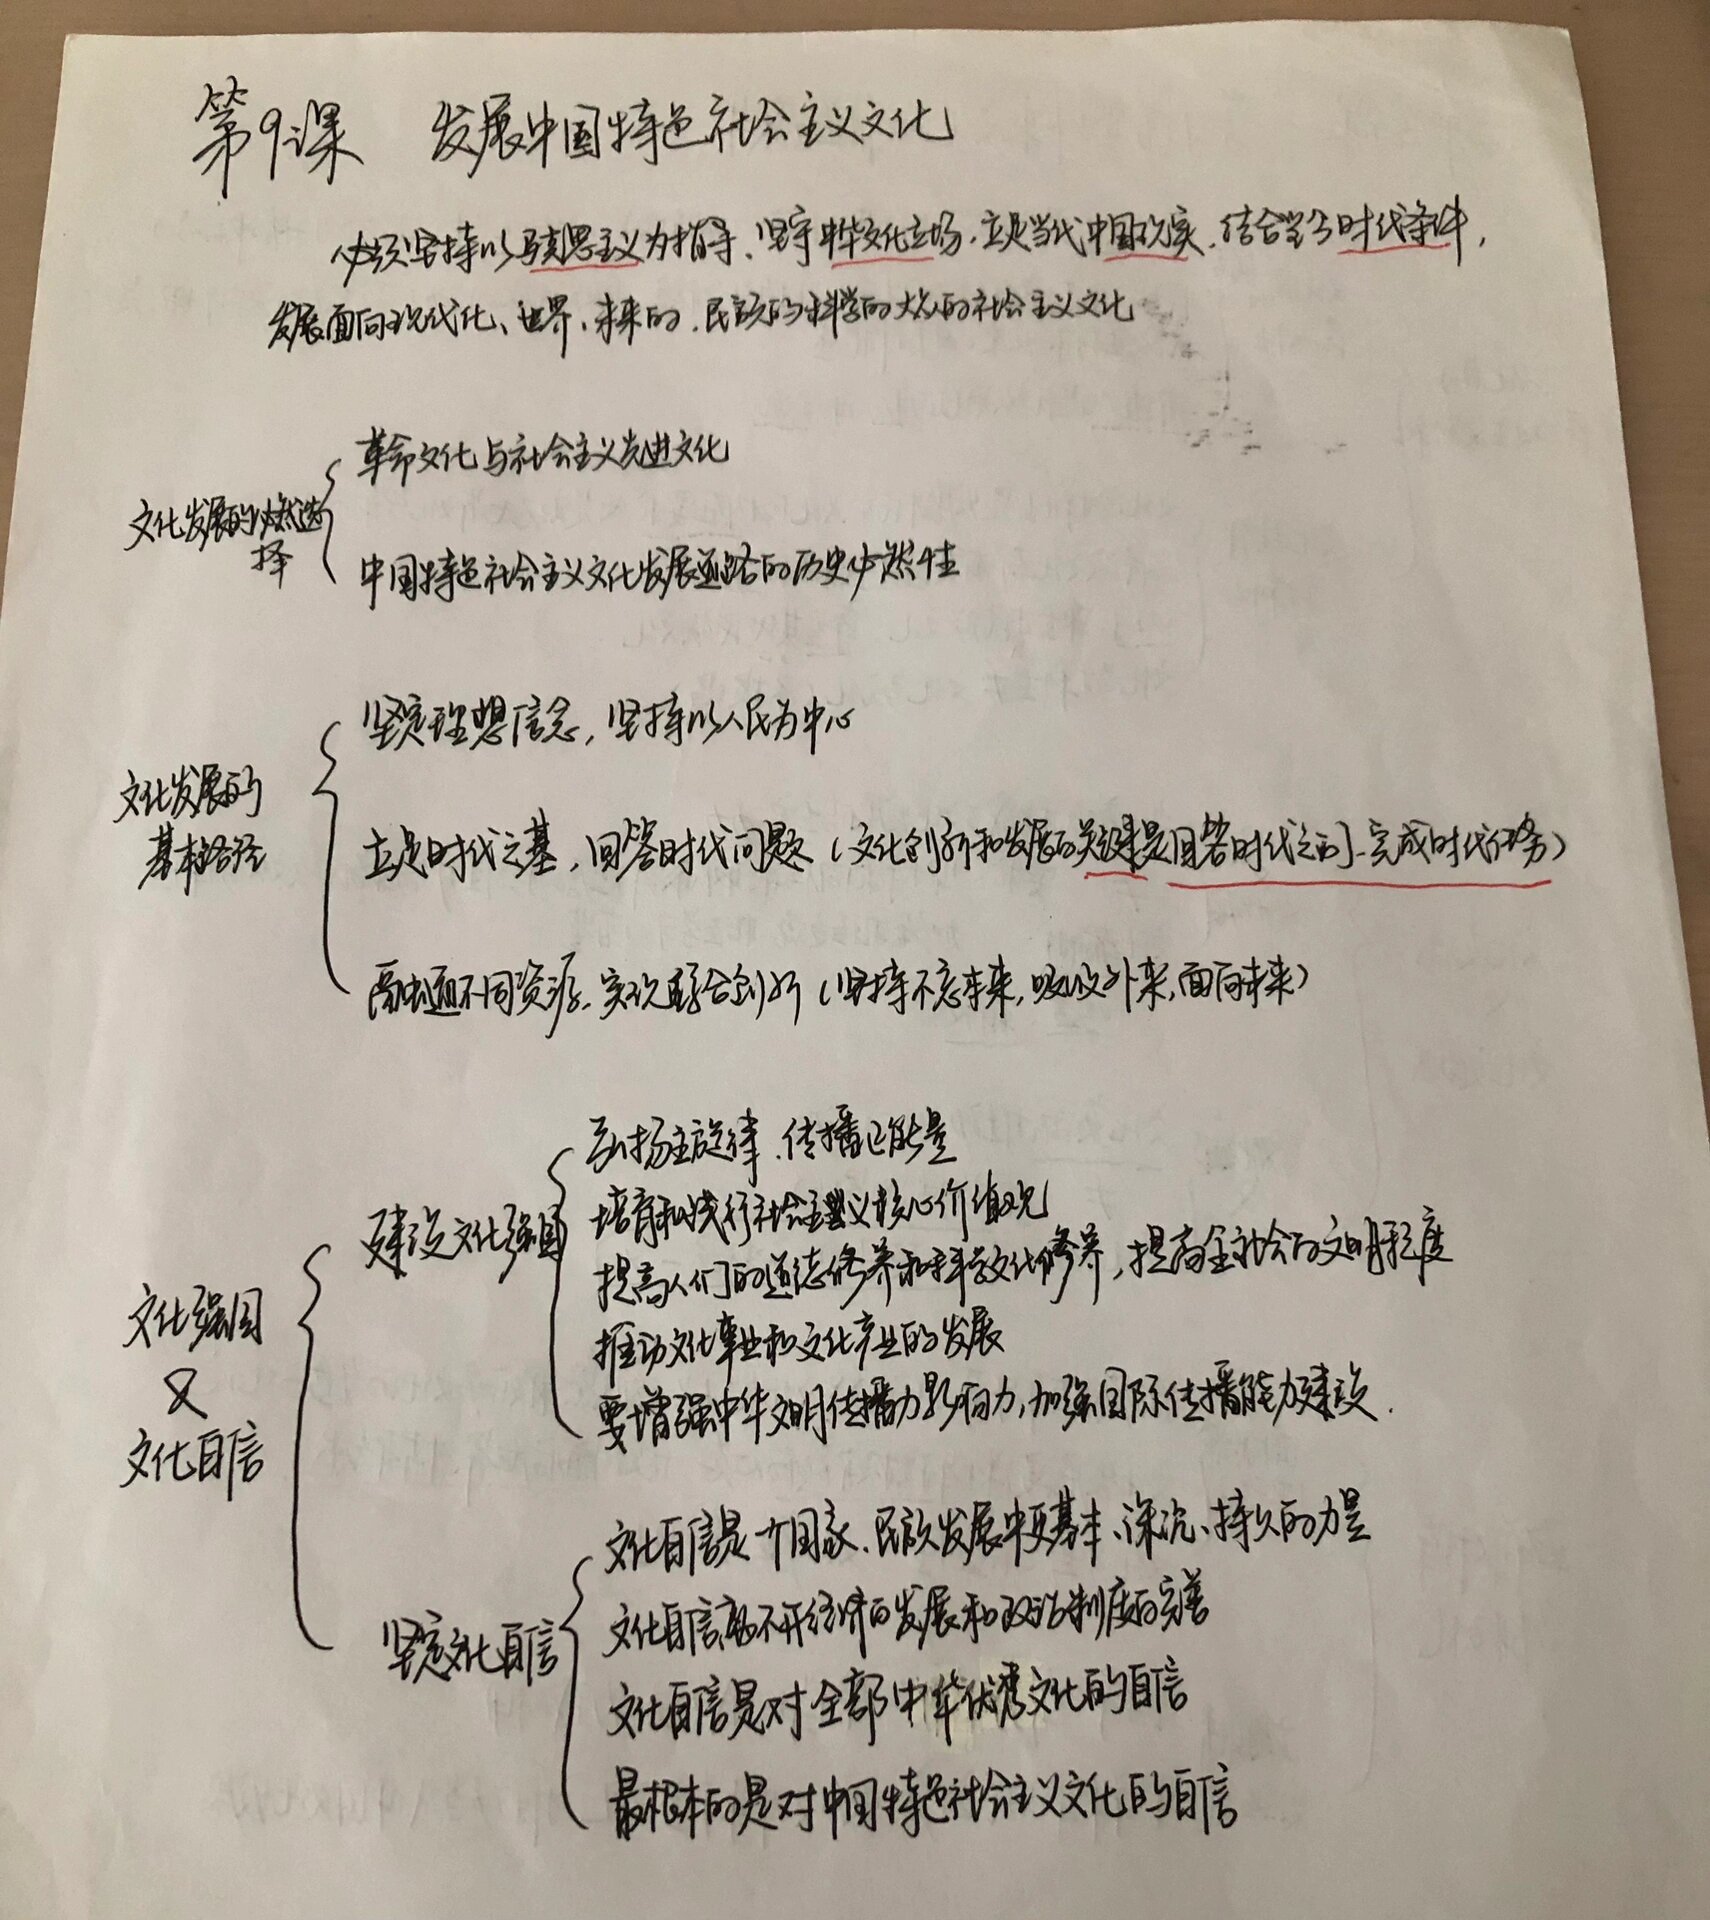 第9课 发展中国特色社会主义文化
必须坚持以马克思主义为指导、坚守中华文化立场，立足当代中国现实，结合当今时代条件，
发展面向现代化、世界、未来的，民族的科学的大众的社会主义文化
文化发展的必然选
择
革命文化与社会主义先进文化
中国特色社会主义文化发展道路的历史必然性
文化发展的
基本路径
坚定理想信念，坚持以人民为中心
立足时代之基，回答时代问题（文化创新和发展的关键是回答时代之问、完成时代任务）
融通不同资源、实现综合创新（坚持不忘本来，吸收外来，面向未来）
文化强国
&
文化自信
建设文化强国
弘扬主旋律、传播正能量
培育和践行社会主义核心价值观
提高人们的道德修养和科学文化修养，提高全社会的文明程度
推动文化事业和文化产业的发展
要增强中华文明传播力影响力，加强国际传播能力建设．
坚定文化自信
文化自信是一个国家、民族发展中更基本、深沉、持久的力量
文化自信离不开经济的发展和政治制度的完善
文化自信是对全部中华优秀文化的自信
最根本的是对中国特色社会主义文化的自信